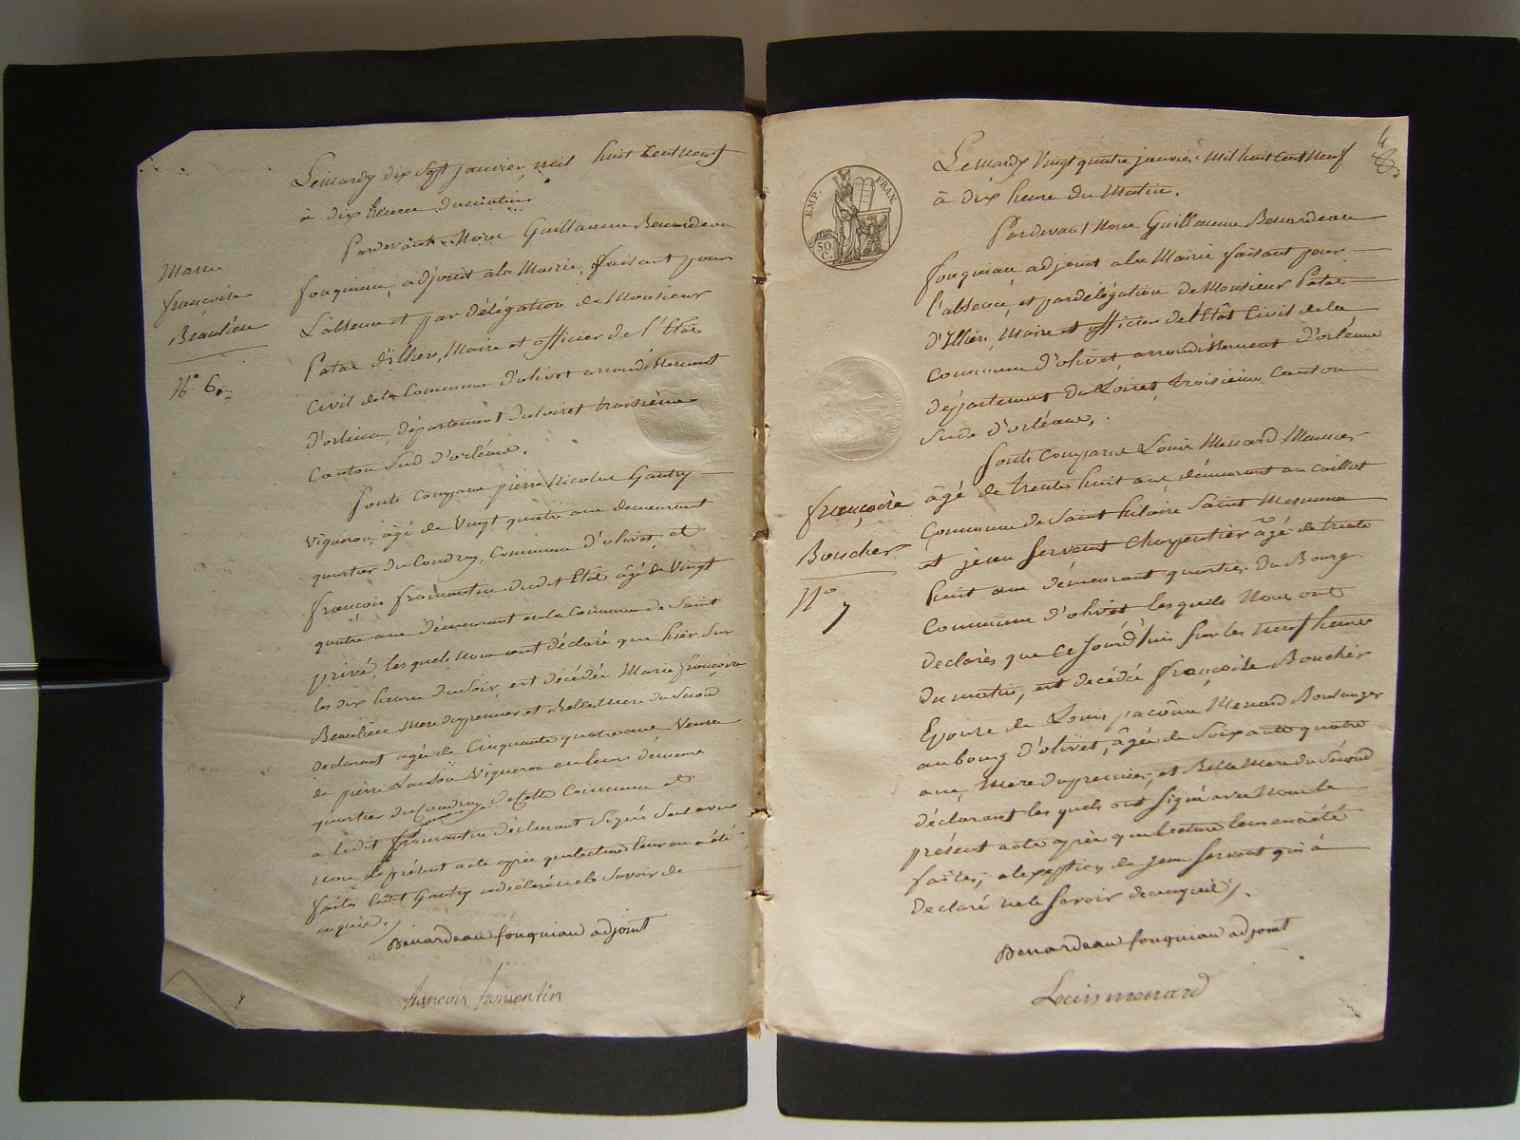 Le mardy dix Sept janvier mil huit Cent neuf
à dix heure du matin.
Pardevant Nous Guillaume Benardeau
fouquiau, adjoint ala Mairie, faisant pour
L'absence et par délégation de Monsieur
Patas d'illiers, Maire et officier de l'Etat
Civil dela Commune d'olivet arrondissement
d'orléans, département du loiret troisieme
Canton Sud d'orléans.
Sont Comparu pierre Nicolas Gautry
Vigneron, âgé de Vingt quatre ans demeurant
quartier du Coudray, Commune d'olivet, et
françois fromentin dudit Etat âgé de Vingt
quatre ans demeurant en la Commune de Saint
privé, lesquels nous ont déclaré que hier Sur
les dix heures du Soir, est décédée Marie françoise
Beaulieu Mere du premier et Belle Mere du Second
declarant agée de Cinquante quatre ans Veuve
de pierre Vigneron en leurs demeure
quartier du Coudray de Cette Commune et
a ledit fromentin déclarant Signé Seul avec
nous le présent acte après que lecture leur en a été
faite ledit Gautry a déclaré ne le Savoir de
ce quis de /.
Benardeau fouquiau adjoint
francois famentin
Marie
françoise
Beaulieu
N.º 6.
EMP. FRAN.
50 C.
Le mardy Vingt quatre janvier Mil huit Cent Neuf
à dix heure du Matin.
Pardevant Nous Guillaume Benardeau
fouquiau adjoint ala Mairie faisant pour
l'absence, et par delégation de Monsieur Patas
d'Illiers, Maire et officier de l'Etât Civil de la
Commune d'olivet arrondissement d'orléans
département du Loiret, troisieme Canton
Sud d'orléans,
Sont Comparu Louis Menard Meunier
âgé de trente huit ans démeurant au Caillot
Commune de Saint hilaire Saint Mesmin
et jean Servant Charpentier âgé de trente
huit ans démeurant quartier du Bourg
Commune d'olivet lesquels Nous ont
declarés que Ce jourd'hui Sur les neuf heures
du matin, est decédé françoise Boucher
Epouse de Louis Menard Boulanger
au bourg d'olivet, âgée de Soixante quatre
ans, Mere du premier, et Belle Mere du Second
déclarant les quels ont Signé avec Nous le
présent acte après que lecture leur en a été
faites; a l'exeption de jean Servant qui à
Declaré ne le Savoir de ce enquis /.
Benardeau fouquiau adjoint
Louis menard
françoise
Boucher
N.º
7